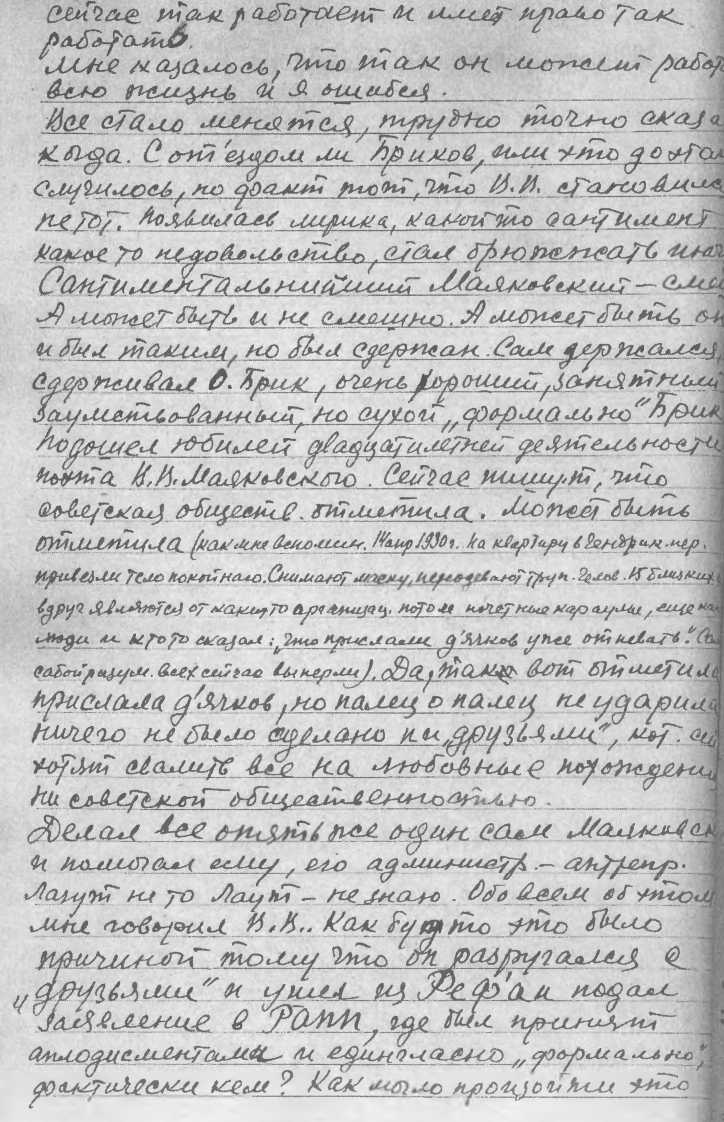 сейчас так работает и имет право так
работать.
Мне казалось, что так он может работ
всю жизнь и я ошибся.
Все стало менятся, трудно точно сказа
кыда. С от'ездом ли Бриков, или это до этог
случилось, но факт тот, что В.В. становилс
не тот. Появилась лирика, какой то сантимент
какое то недовольство, стал брюжжать
Сантиментальнийший Маяковский – сме
А может быть и не смешно. А может быть он
и был таким, но был сдержан. Сам держался,
сдерживал О. Брик, очень хороший, занятный
заумствованный, но сухой „формально" Брик
Подошел юбилей двадцатилетней деятельности
поэта В.В. Маяковского. Сейчас пишут, что
советская обществ. отметила. Может быть
отметила (как мне вспомин. 14 апр 1930 г. на квартиру в Гендрик. пер.
привезли тело покойного. Снимают маску, переодевают труп. Челов. 15 близких
вдруг являются от какийто организац. потом почетные караулы, еще как
люди и кто то сказал: „что прислали д'ячков уже отпевать". Са
собой разум. всех сейчас выперли). Да, так вот отметила
прислала д'ячков, но палец о палец не ударила
ничего не было сделано ни „друзьями", кот. се
хотят свалить все на любовные похождени
ни советской общественностью.
Делал все опять же один сам Маяковск
и помогал ему, его администр. – антрепр.
Лагут не то Лаут – не знаю. Обо всем об этом
мне говорил В.В.. Как будто это было
причиной тому что он разругался с
„друзьями" и ушел из Реф'а и подал
заявление в РАПП, где был принят
аплодисментами и едингласно „формально",
фактически кем? Как могло произойти это